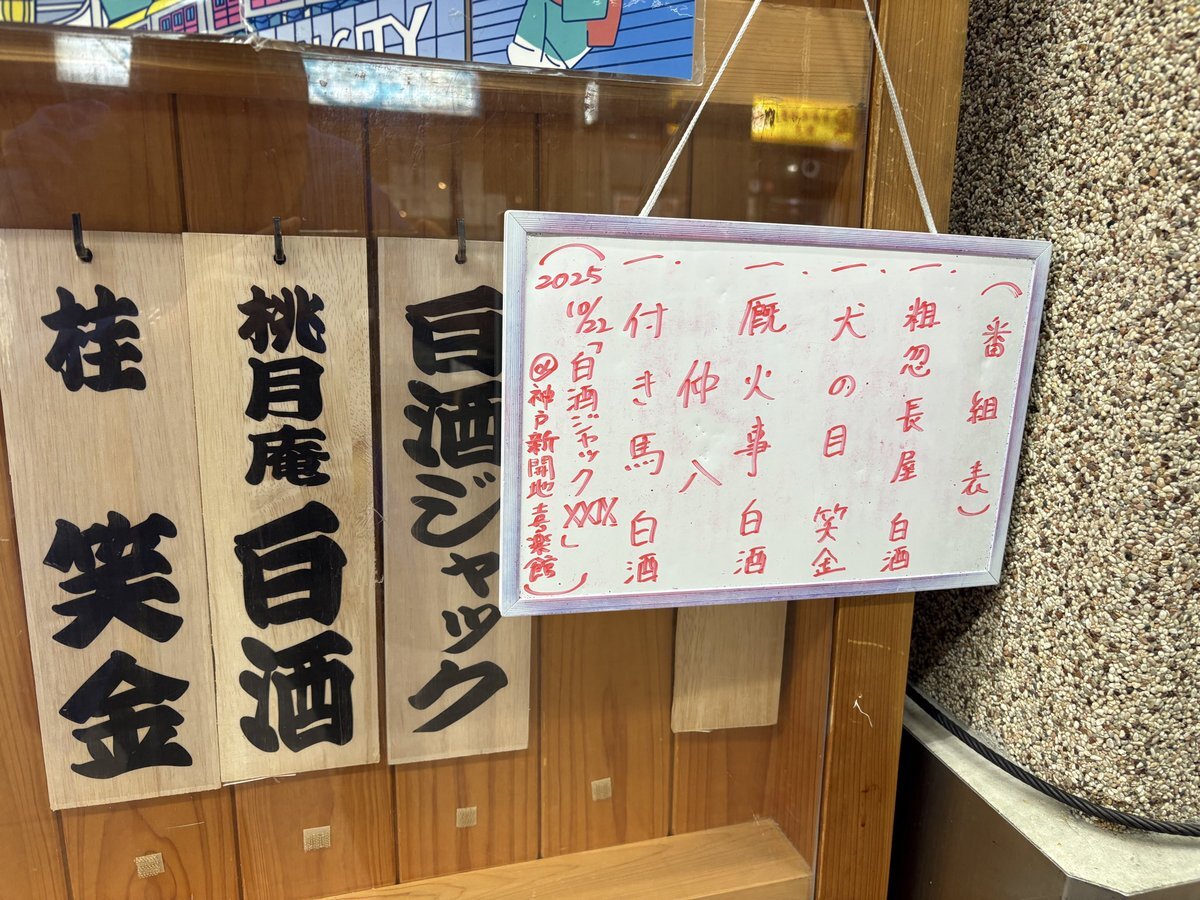 （番組表）
一．粗忽長屋 白酒
一．犬の目 笑金
一．厩火事 白酒
仲入
一．付き馬 白酒
（2025 10/22「白酒ジャックXXIX」
@神戸新開地喜楽館）
白酒ジャック
桃月庵 白酒
桂 笑金